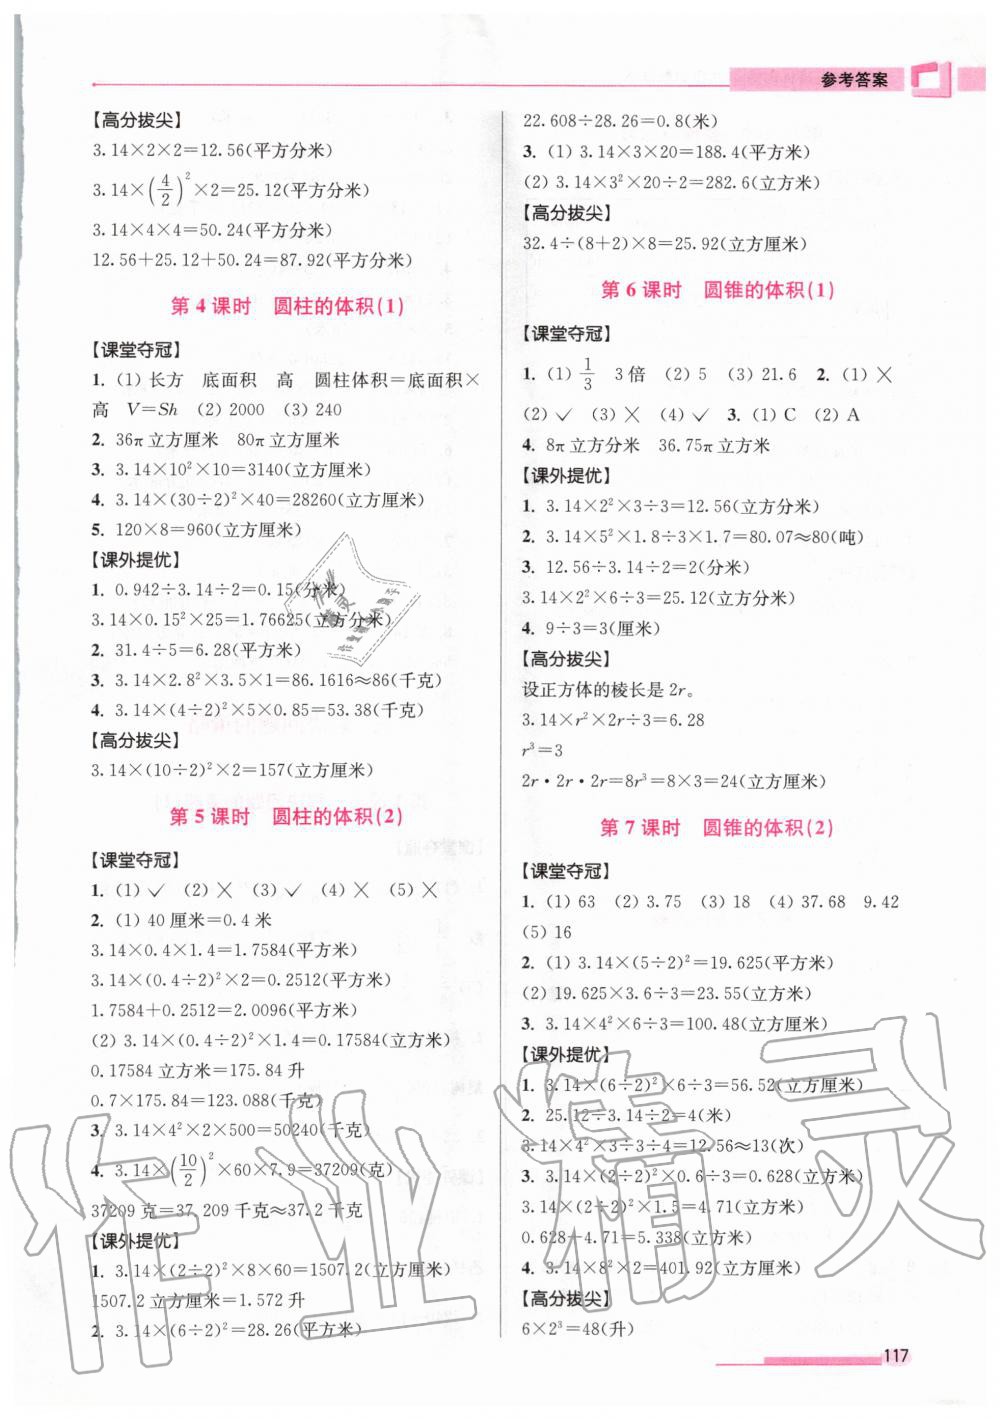 参考答案
【高分拔尖】
3.14×2×2=12.56(平方分米)
3.14×(4/2)²×2=25.12(平方分米)
3.14×4×4=50.24(平方分米)
12.56+25.12+50.24=87.92(平方分米)
第 4 课时　圆柱的体积(1)
【课堂夺冠】
1. (1) 长方　底面积　高　圆柱体积=底面积×
高　V=Sh　(2) 2000　(3) 240
2. 36π 立方厘米　80π 立方厘米
3. 3.14×10²×10=3140(立方厘米)
4. 3.14×(30÷2)²×40=28260(立方厘米)
5. 120×8=960(立方厘米)
【课外提优】
1. 0.942÷3.14÷2=0.15(分米)
3.14×0.15²×25=1.76625(立方分米)
2. 31.4÷5=6.28(平方米)
3. 3.14×2.8²×3.5×1=86.1616≈86(千克)
4. 3.14×(4÷2)²×5×0.85=53.38(千克)
【高分拔尖】
3.14×(10÷2)²×2=157(立方厘米)
第 5 课时　圆柱的体积(2)
【课堂夺冠】
1. (1) ✓　(2) ×　(3) ✓　(4) ×　(5) ×
2. (1) 40 厘米=0.4 米
3.14×0.4×1.4=1.7584(平方米)
3.14×(0.4÷2)²×2=0.2512(平方米)
1.7584+0.2512=2.0096(平方米)
(2) 3.14×(0.4÷2)²×1.4=0.17584(立方米)
0.17584 立方米=175.84 升
0.7×175.84=123.088(千克)
3. 3.14×4²×2×500=50240(千克)
4. 3.14×(10/2)²×60×7.9=37209(克)
37209 克=37.209 千克≈37.2 千克
【课外提优】
1. 3.14×(2÷2)²×8×60=1507.2(立方厘米)
1507.2 立方厘米=1.572 升
2. 3.14×(6÷2)²=28.26(平方米)
22.608÷28.26=0.8(米)
3. (1) 3.14×3×20=188.4(平方米)
(2) 3.14×3²×20÷2=282.6(立方米)
【高分拔尖】
32.4÷(8+2)×8=25.92(立方厘米)
第 6 课时　圆锥的体积(1)
【课堂夺冠】
1. (1) 1/3　3 倍　(2) 5　(3) 21.6　2. (1) ×
(2) ✓　(3) ×　(4) ✓　3. (1) C　(2) A
4. 8π 立方分米　36.75π 立方米
【课外提优】
1. 3.14×2²×3÷3=12.56(立方分米)
2. 3.14×5²×1.8÷3×1.7=80.07≈80(吨)
3. 12.56÷3.14÷2=2(分米)
3.14×2²×6÷3=25.12(立方分米)
4. 9÷3=3(厘米)
【高分拔尖】
设正方体的棱长是 2r。
3.14×r²×2r÷3=6.28
r³=3
2r·2r·2r=8r³=8×3=24(立方厘米)
第 7 课时　圆锥的体积(2)
【课堂夺冠】
1. (1) 63　(2) 3.75　(3) 18　(4) 37.68　9.42
(5) 16
2. (1) 3.14×(5÷2)²=19.625(平方米)
(2) 19.625×3.6÷3=23.55(立方米)
3. 3.14×4²×6÷3=100.48(立方厘米)
【课外提优】
1. 3.14×(6÷2)²×6÷3=56.52(立方厘米)
2. 25.12÷3.14÷2=4(米)
3.14×4²×3÷3÷4=12.56≈13(次)
3. 3.14×(2÷2)²×0.6÷3=0.628(立方米)
3.14×(2÷2)²×1.5=4.71(立方米)
0.628+4.71=5.338(立方米)
4. 3.14×8²×2=401.92(立方厘米)
【高分拔尖】
6×2³=48(升)
117
作业精灵